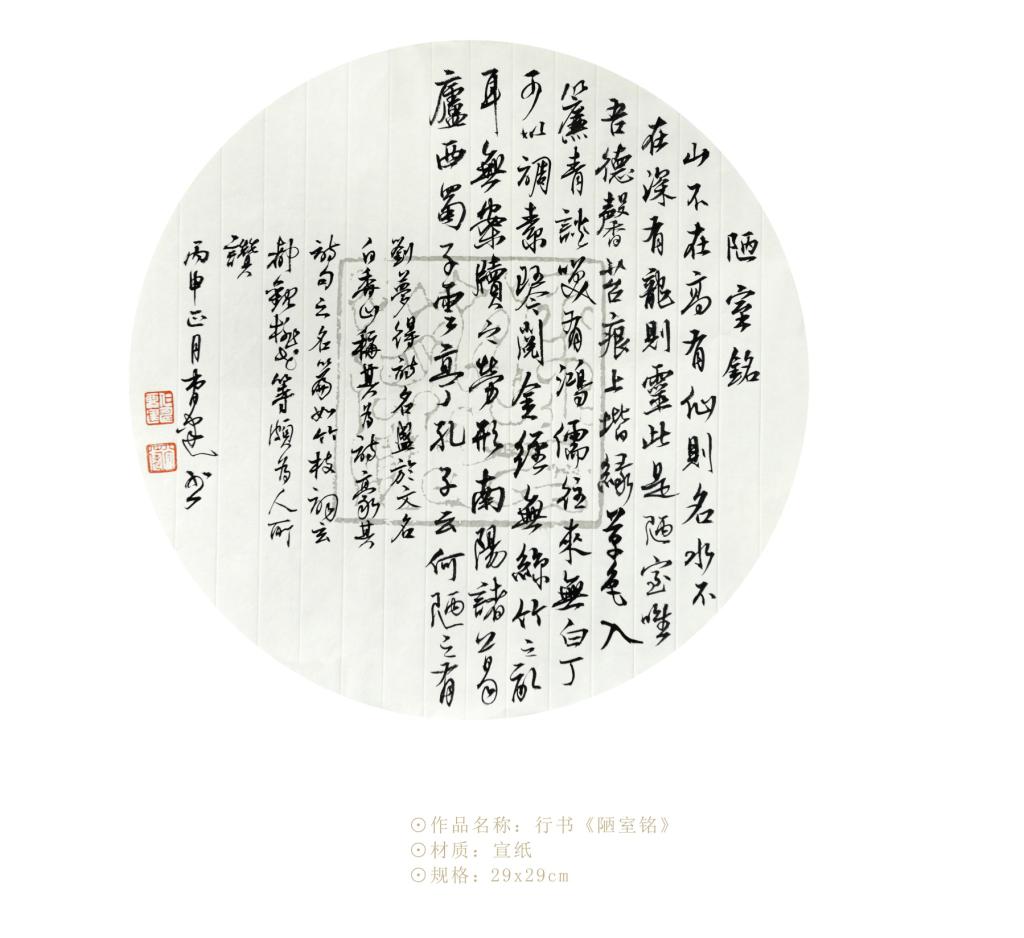 陋室銘
山不在高有仙則名水不
在深有龍則靈此是陋室唯
吾德馨苔痕上堦緑草色入
簾青談笑有鴻儒往來無白丁
可以調素琴閱金經無絲竹之亂
耳無案牘之勞形南陽諸葛
廬西蜀子雲亭孔子云何陋之有
劉夢得詩名盛於文名
白香山稱其為詩豪其
詩句之名篇如竹枝詞玄
都觀桃花等頗為人所
讚
丙申正月 書
⊙作品名称：行书《陋室铭》
⊙材质：宣纸
⊙规格：29x29cm